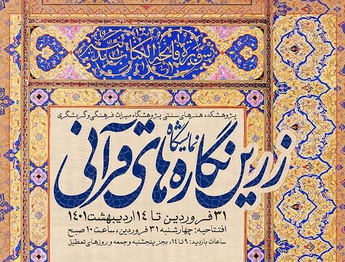 پژوهشکده هنرهای سنتی پژوهشگاه میراث فرهنگی و گردشگری
نمایشگاه
زرین نگاره های قرآنی
۳۱ فروردین تا ۱۴ اردیبهشت ۱۴۰۱
افتتاحیه: چهارشنبه ۳۱ فروردین، ساعت ۱۰ صبح
ساعات بازدید: ۹ تا ۱۴، بجز پنجشنبه و جمعه و روزهای تعطیل